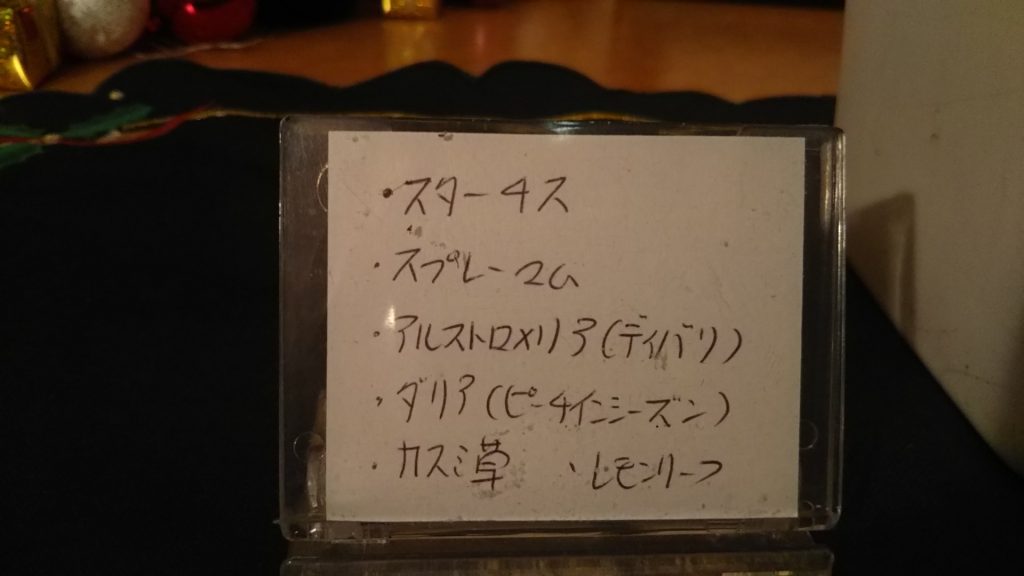 ・スターチス
・スプレーマム
・アルストロメリア(ディバリ)
・ダリア(ピーチインシーズン)
・カスミ草 ・レモンリーフ